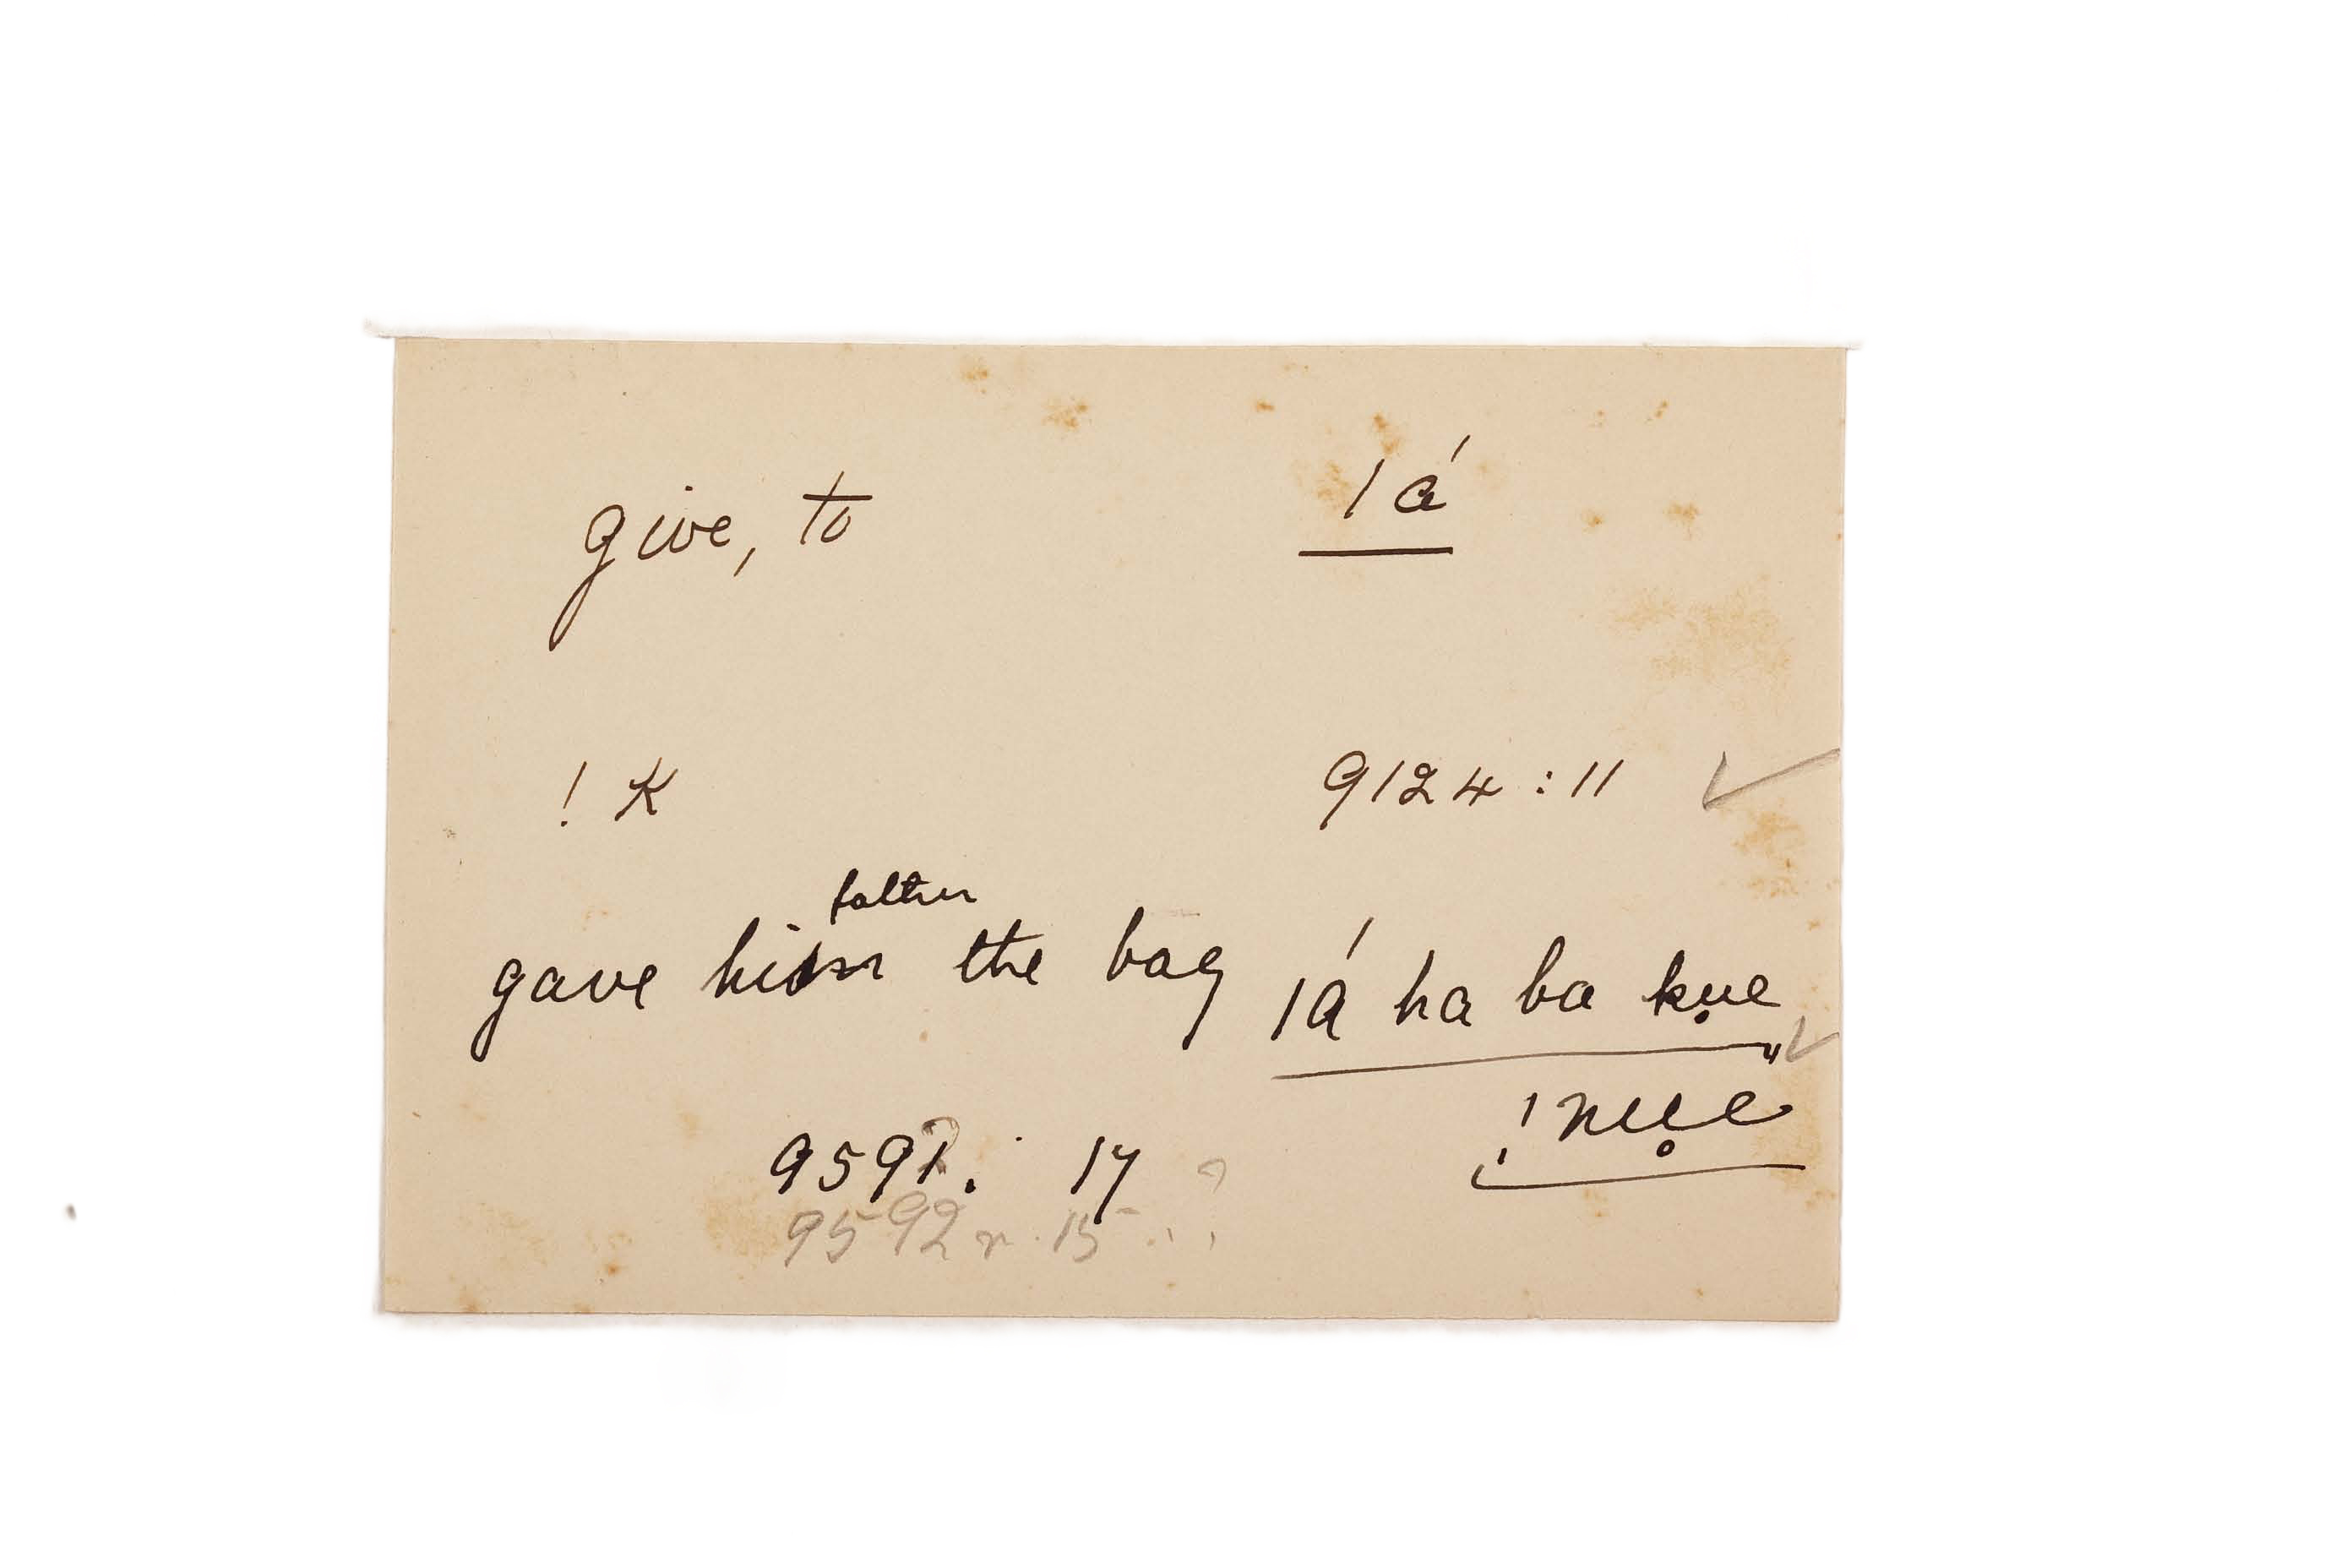 give, to ǀá
! K 9124 : 11 ✓
father
gave him the bag ǀá ha ba ku̥e ✓
!nu̥e
9591 : 17
9592 r. 15